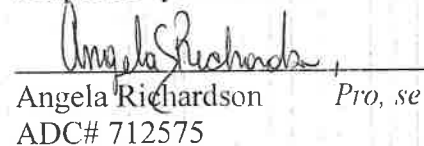 Angela Richardson,
Angela Richardson Pro, se
ADC# 712575